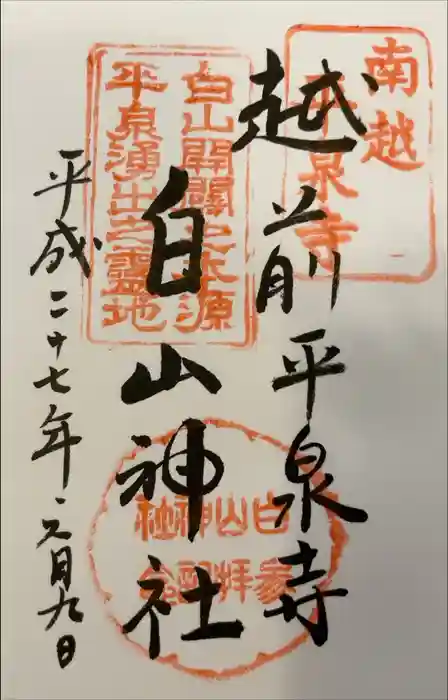 南越
平泉寺
越前平泉寺
白山開闢之本源
平泉湧出之靈地
白山神社
白山神社
參拝
平成二十七年 月九日